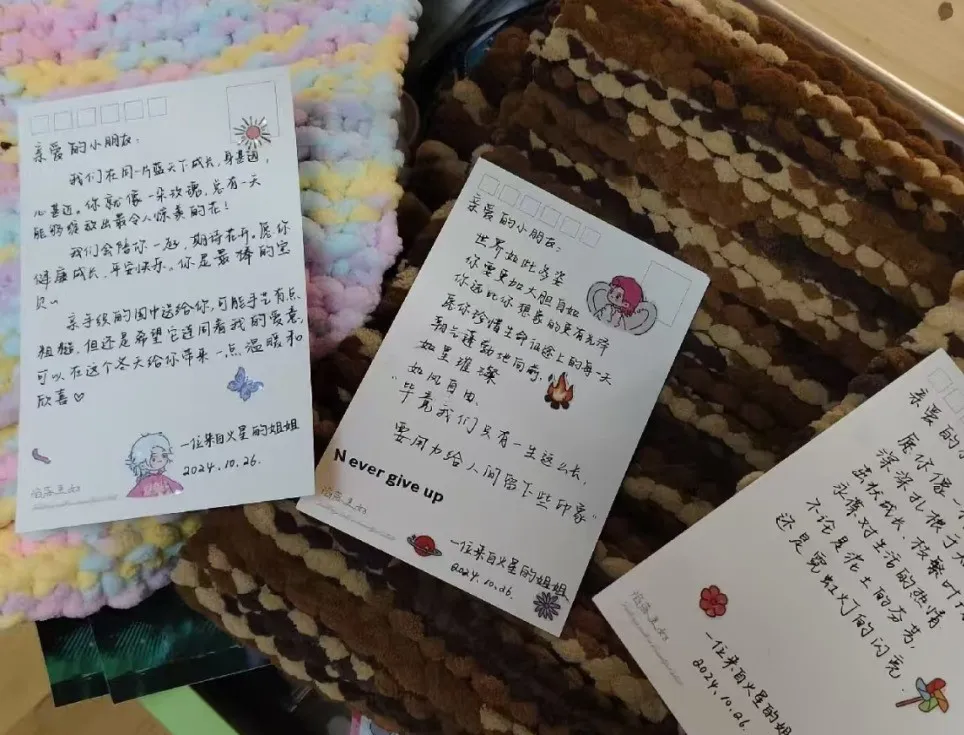 亲爱的小朋友:
我们在同一片蓝天下成长,身甚迩,
心甚近。你就像一朵玫瑰,总有一天
能够绽放出最令人惊羡的花!
我们会陪你一起,期待花开。愿你
健康成长,平安快乐。你是最棒的宝
贝~
亲手织的围巾送给你,可能手艺有点
粗糙,但还是希望它连同着我的爱意,
可以在这个冬天给你带来一点温暖和
欣喜♡
一位来自火星的姐姐
2024.10.26.
亲爱的小朋友:
世界如此多姿
你要更加大胆自如
你远比你想象的更有光泽
愿你珍惜生命征途上的每一天
朝气蓬勃地向前.
如星璀璨
如风自由.
"毕竟我们只有一生这么长,
要用力给人间留下些印象"
Never give up
一位来自火星的姐姐
2024.10.26.
亲爱的小
愿你像一
深深扎根于大
茁壮成长、枝繁叶
永葆对生活的热情
不论是泥土的芬芳,
还是霓虹灯的闪亮.
一位来自火星的姐
2024.10.26.